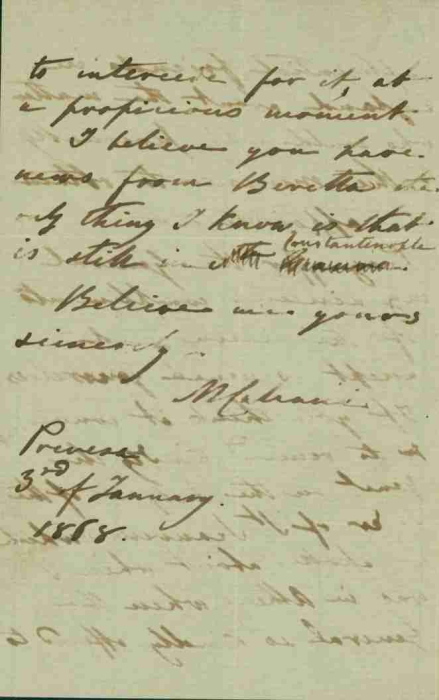 to intercede for it, at
a propicious moment.
I believe you have
news from Beretta the
only thing I know is that
is still in Constantinople
Believe me yours
sincerely
Prevesa
3rd of January.
1868.